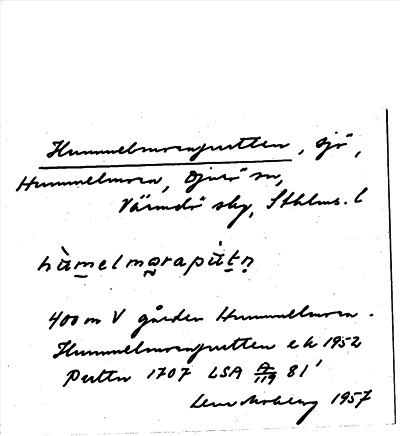 Hummelmoraputten, sjö,
Hummelmora, Djurö sn,
Värmdö skg, Sthlms. l
hùmelmorapùtn̥
400 m V gården Hummelmora.
Hummelmoraputten ek 1952
Putten 1707 LSA A/119 81'
Moberg 1957